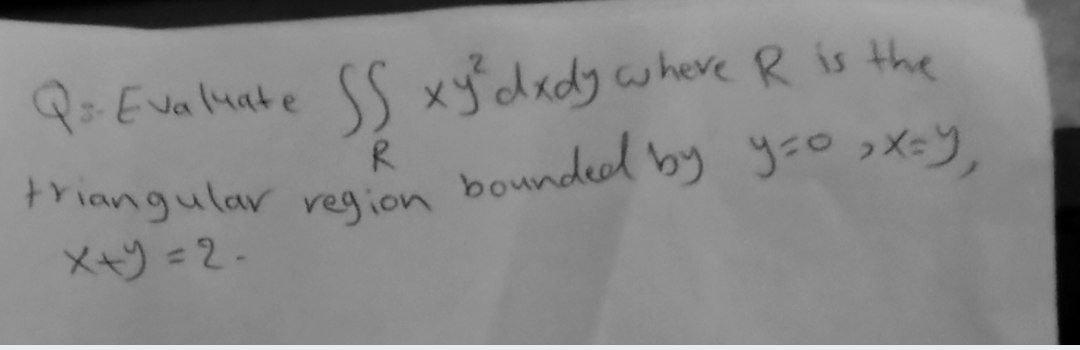 Q:- Evaluate ∬ xy² dxdy where R is the
R
triangular region bounded by y=0, x=y,
x+y=2.